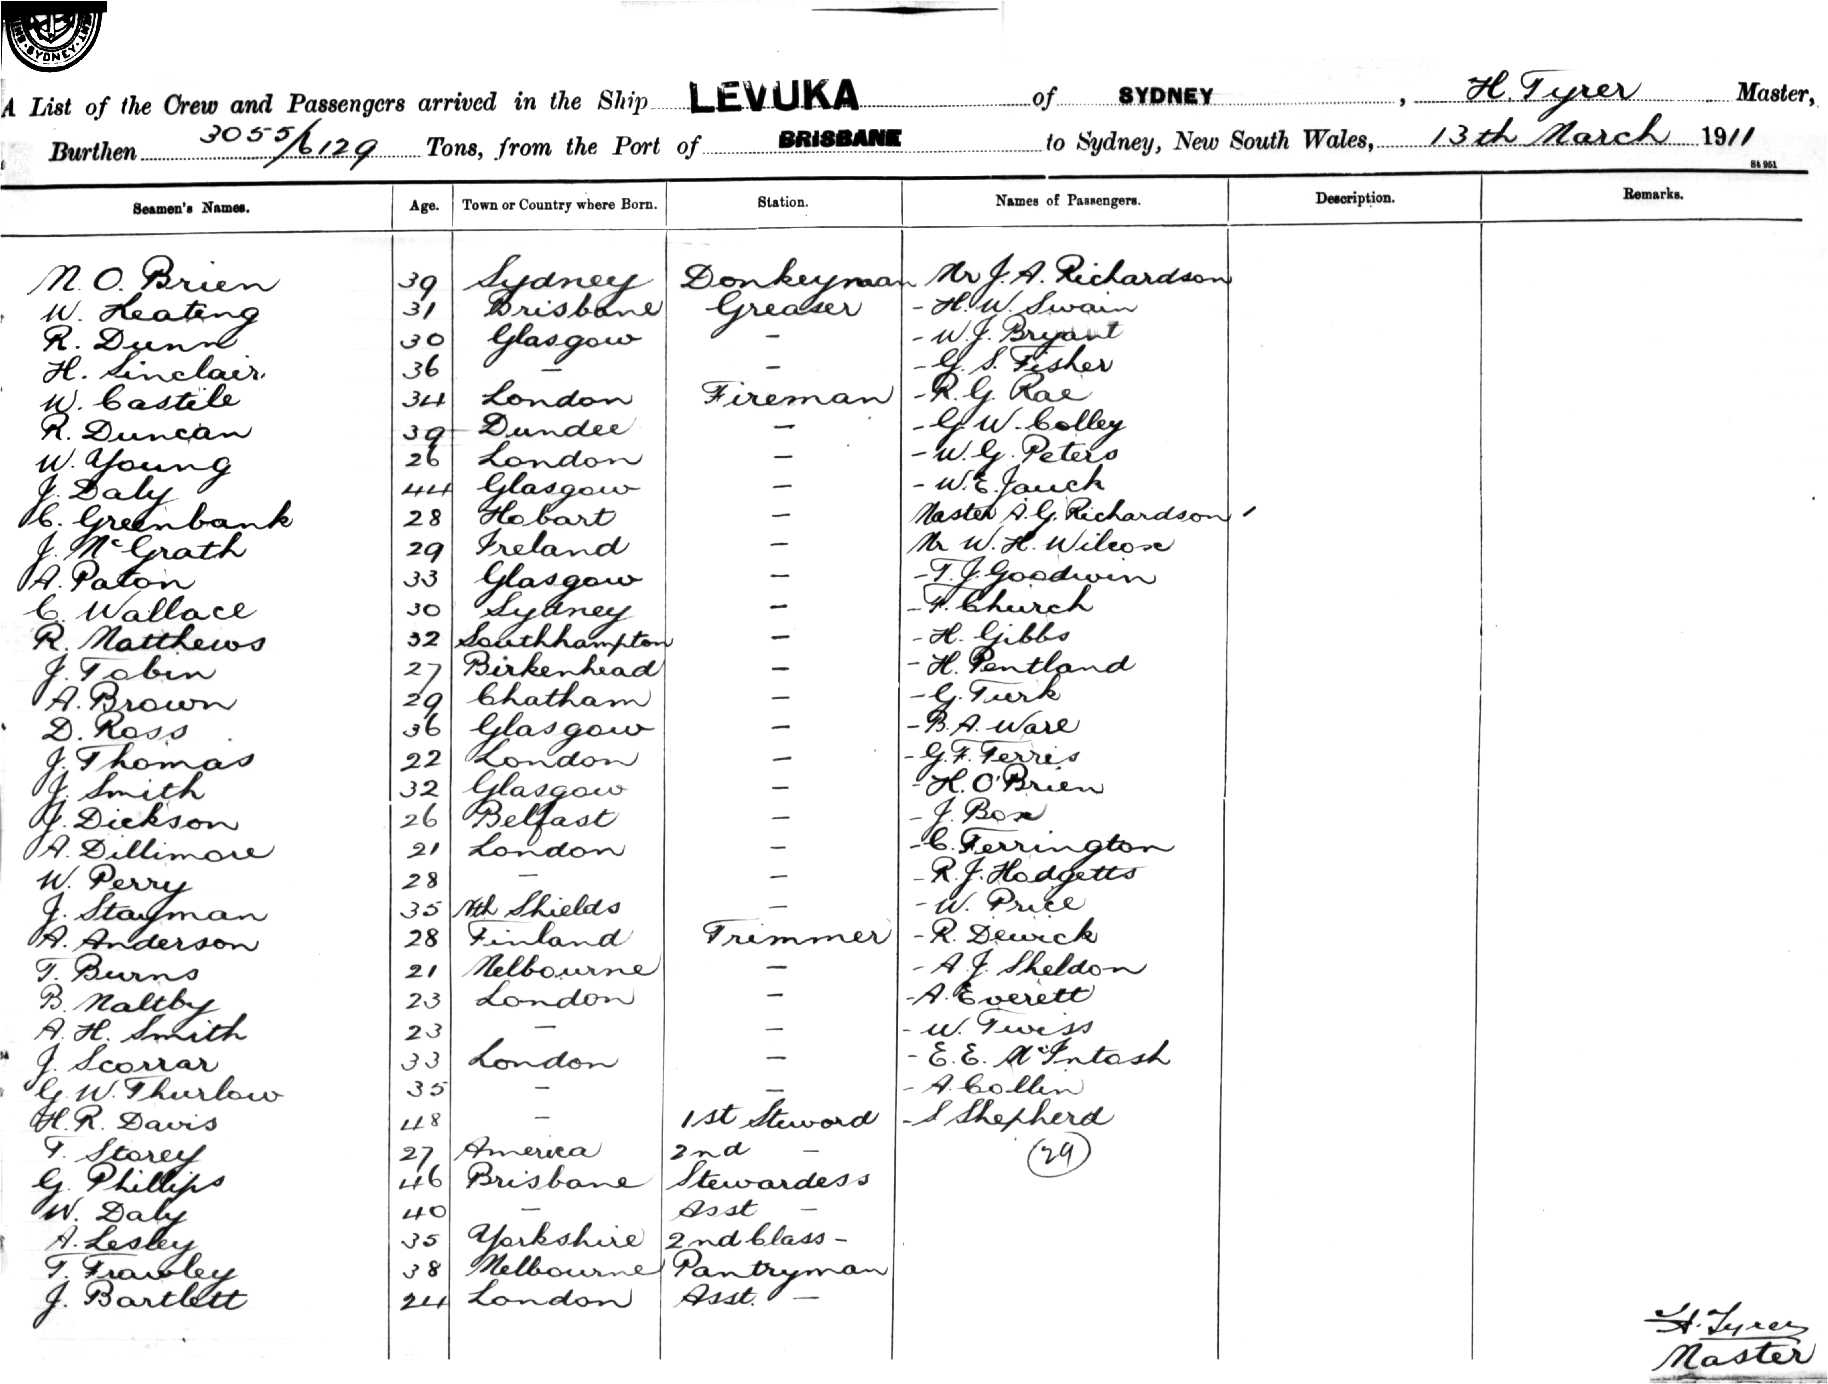 SYDNEY
A List of the Crew and Passengers arrived in the Ship LEVUKA of SYDNEY, H. Tyrer Master,
Burthen 3055/6129 Tons, from the Port of BRISBANE to Sydney, New South Wales, 13th March 1911
St 951
Seamen's Names. Age. Town or Country where Born. Station. Names of Passengers. Description. Remarks.
M. O. Brien 39 Sydney Donkeyman Mr J. A. Richardson
W. Heating 31 Brisbane Greaser - H. W. Swain
R. Dunn 30 Glasgow - - W. J. Bryant
H. Sinclair 36 - - - G. S. Fisher
W. Castile 34 London Fireman - R. G. Rae
R. Duncan 39 Dundee - - G. W. Colley
W. Young 26 London - - W. G. Peters
J. Daly 44 Glasgow - - W. E. Jauck
C. Greenbank 28 Hobart - Master A. G. Richardson
J. McGrath 29 Ireland - Mr W. H. Wilcox
A. Paton 33 Glasgow - - T. J. Goodwin
C. Wallace 30 Sydney - - F. Church
R. Matthews 32 Southhampton - - H. Gibbs
J. Tobin 27 Birkenhead - - H. Pentland
A. Brown 29 Chatham - - G. Turk
D. Ross 36 Glasgow - - B. A. Ware
J. Thomas 22 London - - G. F. Ferris
J. Smith 32 Glasgow - - H. O'Brien
J. Dickson 26 Belfast - - J. Box
A. Dillimore 21 London - - C. Ferrington
W. Perry 28 - - - R. J. Hodgetts
J. Stayman 35 Nth Shields - - W. Price
A. Anderson 28 Finland Trimmer - R. Dewick
T. Burns 21 Melbourne - - A. J. Sheldon
B. Maltby 23 London - - A. Everett
A. H. Smith 23 - - - W. Twiss
J. Scorrar 33 London - - E. E. McIntosh
G. W. Thurlow 35 - - - A. Collin
H. R. Davis 48 - 1st Steward - S Shepherd
T. Storey 27 America 2nd - 29
G. Phillips 46 Brisbane Stewardess
W. Daly 40 - Asst -
A. Lesley 35 Yorkshire 2nd Class -
T. Frawley 38 Melbourne Pantryman
J. Bartlett 24 London Asst. -
H. Tyrer
Master